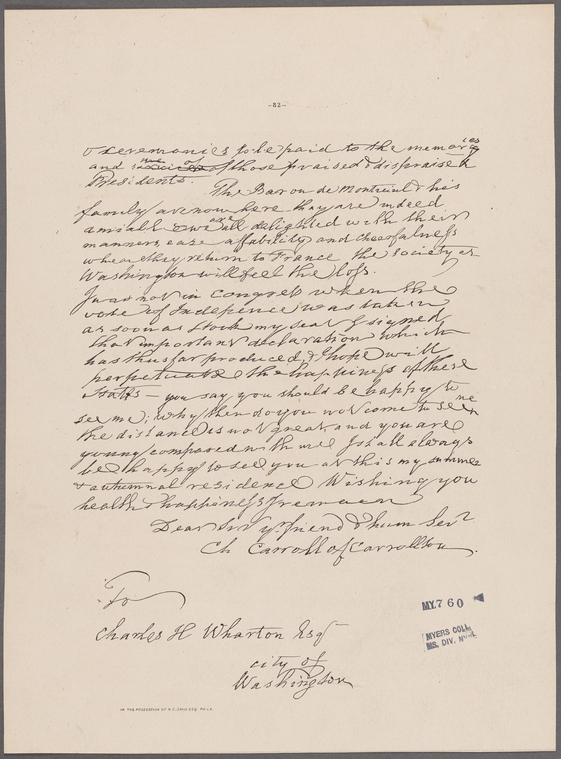 -82-
& ceremonies to be paid to the memories
and of those praised & dispraised
Presidents. The Baron de Montreuil & his
family are now here they are indeed
amiable & we are all delighted with their
manners, ease affability and cheerfulness
when they return to France the society at
Washington will feel the loss.
I was not in congress when the
vote of Indepence was taken
as soon as I took my seat I signed
that important declaration which
has thus far produced, & I hope will
perpetuate the happiness of these
States — you say you should be happy to
see me; why then do you not come to see me
the distance is not great and you are
young compared with me I shall always
be happy to see you at this my summer
& autumnal residence Wishing you
health & happiness I remain
Dear Sir yr. friend & hum Servt
Ch Carroll of Carrollton.
To
Charles H Wharton Esqr
city of
Washington
MY 7 60
MYERS COLL.
MS. DIV. N.Y.P.L.
IN THE POSSESSION OF R. C. DAVIS ESQ. PHILA.